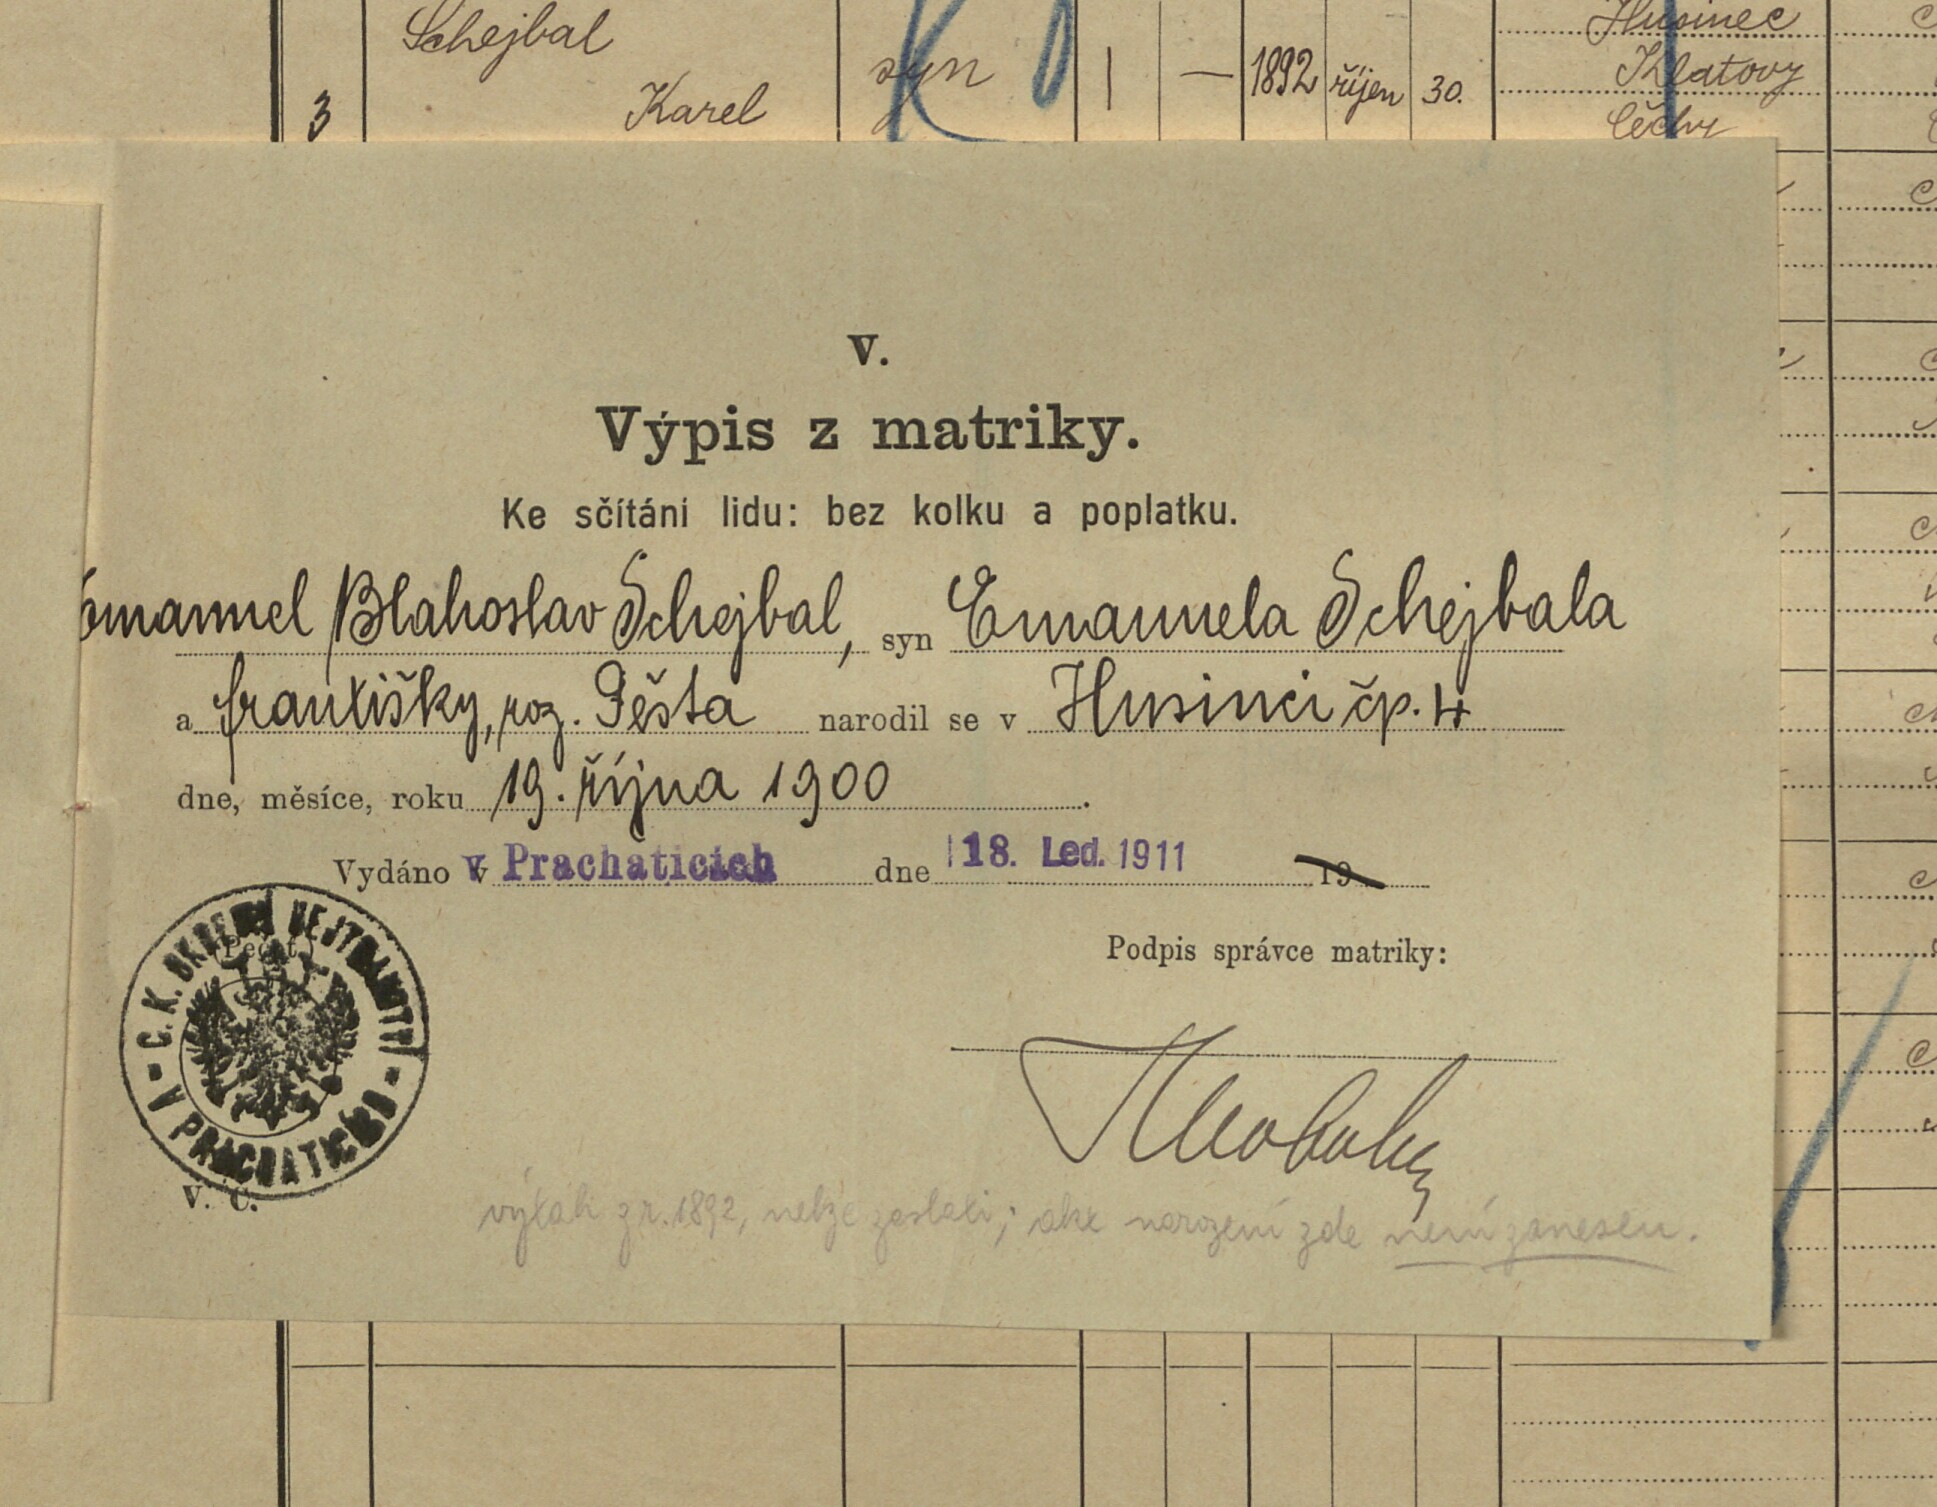 Schejbal
3 Karel syn 1 — 1892 říjen 30.
Husinec
Klatovy
Čechy
V.
Výpis z matriky.
Ke sčítání lidu: bez kolku a poplatku.
Emanuel Blahoslav Schejbal, syn Emanuela Schejbala
a Františky, roz. Pěsta narodil se v Husinci čp. 4
dne, měsíce, roku 19. října 1900.
Vydáno v Prachaticích dne 18. Led. 1911 19
Podpis správce matriky:
(Pečeť)
C. K. OKRESNÍ HEJTMANSTVÍ
V PRACHATICÍCH
V. Č.
výtah z r. 1892, nelze zaslati; akt narození zde není zanesen.